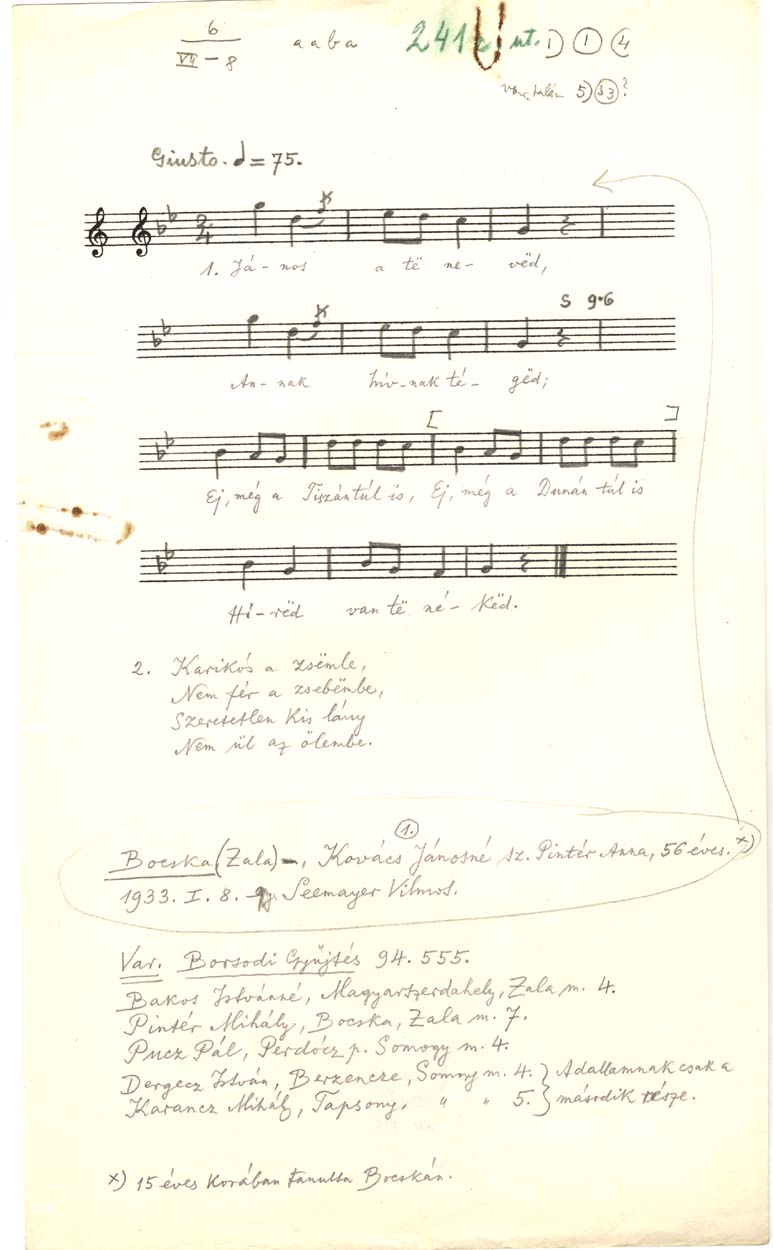 6
VII – 8
a a b a
241 ut. 1) ① ④
var. talán 5) ♭3 ?
Giusto. ♩= 75.
1. Já – nos a të ne – vëd,
S 9·6
An – nak hív – nak té – gëd;
[ ]
Ej, még a Tiszántúl is, Ej, még a Dunán túl is
Hi – rëd van të né – këd.
2. Karikós a zsëmle,
Nem fér a zsebëmbe,
Szeretetlen kis lány
Nem ül az ölembe.
1.
Bocska (Zala) –, Kovács Jánosné sz. Pintér Anna, 56 éves. x)
1933. I. 8. gy Seemayer Vilmos.
Var. Borsodi Gyűjtés 94. 555.
Bakos Istvánné, Magyarszerdahely, Zala m. 4.
Pintér Mihály, Bocska, Zala m. 7.
Pucz Pál, Perdócz p. Somogy m. 4.
Dergecz István, Berzencze, Somogy m. 4. } A dallamnak csak a
Karancz Mihály, Tapsony, " " 5. } második része.
x) 15 éves korában tanulta Bocskán.